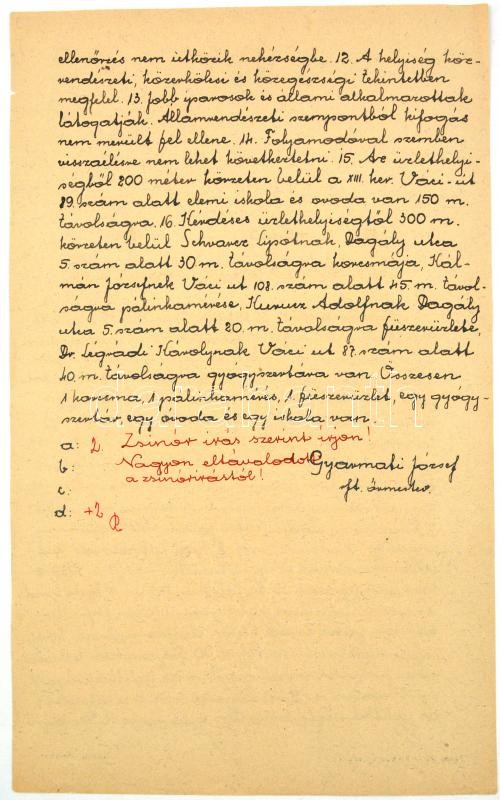 ellenőrzés nem ütközik nehézségbe. 12. A helyiség köz-
rendészeti, közerkölcsi és közegészségi tekintetben
megfelel. 13. Jobb iparosok és állami alkalmazottak
látogatják. Államrendészeti szempontból kifogás
nem merült fel ellene. 14. Folyamodóval szemben
visszaélésre nem lehet következtetni. 15. Az üzlethelyi-
ségből 200 méter körzeten belül a XIII. ker. Váci-út
89. szám alatt elemi iskola és óvoda van 150 m.
távolságra. 16. Kérdéses üzlethelyiségtől 300 m.
körzeten belül Schwarcz Lipótnak, Dagály utca
5. szám alatt 30 m. távolságra korcsmája, Kál-
mán Józsefnek Váci ut 108. szám alatt 45. m. távol-
ságra pálinkamérése, Kurusz Adolfnak Dagály
utca 5. szám alatt 20. m. távolságra fűszerüzlete,
Dr. Légrádi Károlynak Váci ut 87. szám alatt
40. m. távolságra gyógyszertára van. Összesen
1 korcsma, 1 pálinkamérés, 1 fűszerüzlet, egy gyógy-
szertár, egy óvoda és egy iskola van.
a: 2. Zsinór irás szerint irjon!
b: Nagyon eltávolodott Gyarmati József
c: a zsinórirástól! ft. őrmester.
d: +2